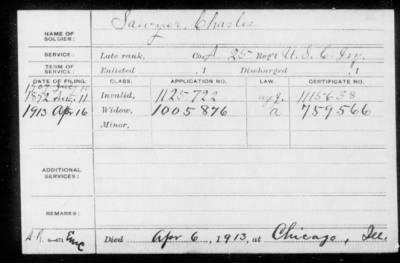 NAME OF SOLDIER: Sawyer, Charles
SERVICE: Late rank, Co. A 25 Reg't U.S.C. Inf.
TERM OF SERVICE: Enlisted , 1 Discharged , 1
DATE OF FILING. CLASS. APPLICATION NO. LAW. CERTIFICATE NO.
11
11 Invalid, 1125722 1115638
1913 Apr 16 Widow, 1005876 a 759566
Minor,
ADDITIONAL SERVICES:
REMARKS:
Died Apr 6, 1913, at Chicago, Ill.